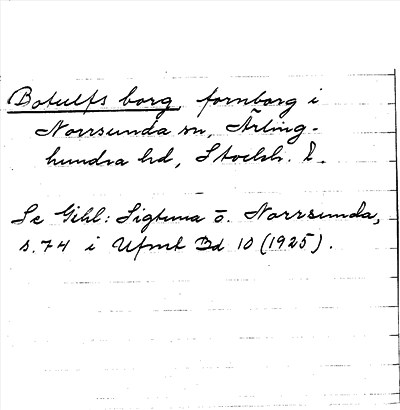 Botulfs borg, fornborg i
Norrsunda sn, Ärling-
hundra hd, Stockh. l.
Se Gihl: Sigtuna o. Norrsunda,
s. 74 i Ufmt Bd 10 (1925).